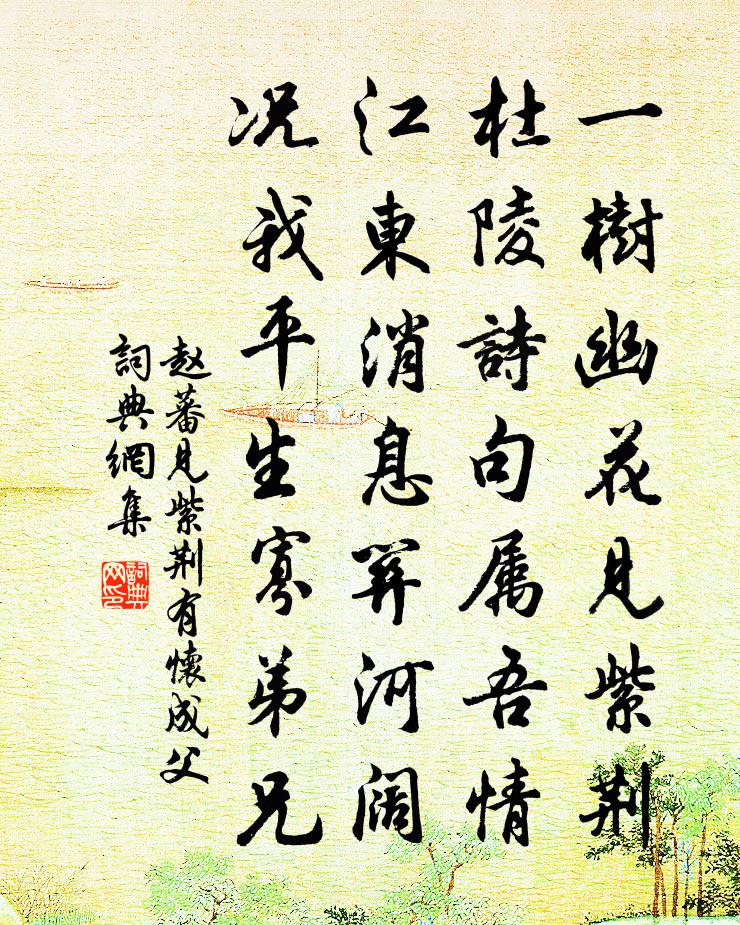 一樹幽花見紫荆
杜陵詩句属吾情
江東消息関河阔
况我平生寡弟兄
赵蕃見紫荆有懷成父
詞典網集
詞典网印